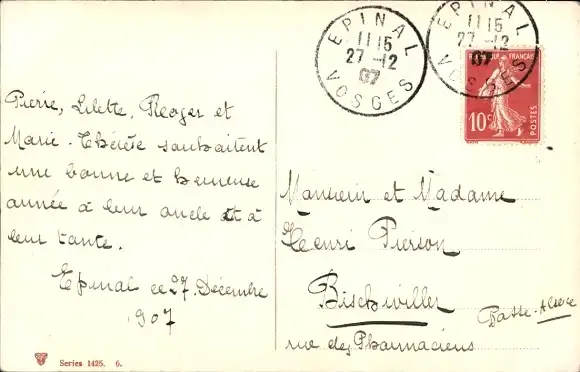 EPINAL
11 15
27-12
07
VOSGES
EPINAL
11 15
27-12
07
VOSGES
RÉPUBLIQUE FRANÇAISE
10c
POSTES
Pierre, Lilette, Reoger et
Marie-Thérèse souhaitent
une bonne et heureuse
année à leur oncle et à
leur tante.
Epinal ce 27 Décembre
907
Monsieur et Madame
Henri Pierson
Bischwiller
Basse-Alsace
rue des Pharmaciens
Series 1425. 6.